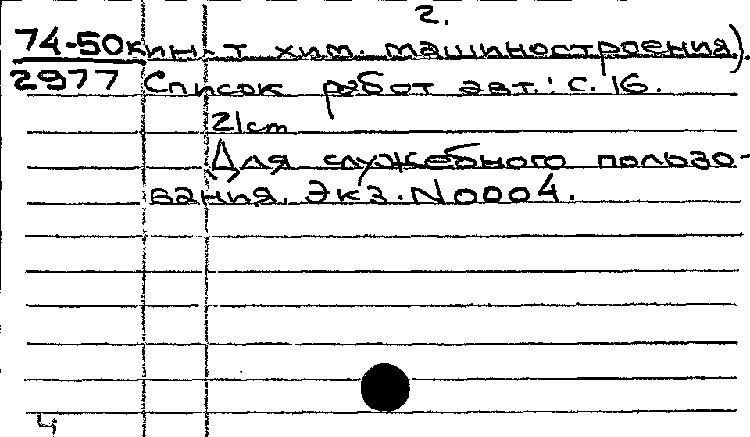 2.
74-50кин-т хим. машиностроения).
2977 Список работ авт.: с. 16.
21cm
Для служебного пользо-
вания. Экз. N0004.
4